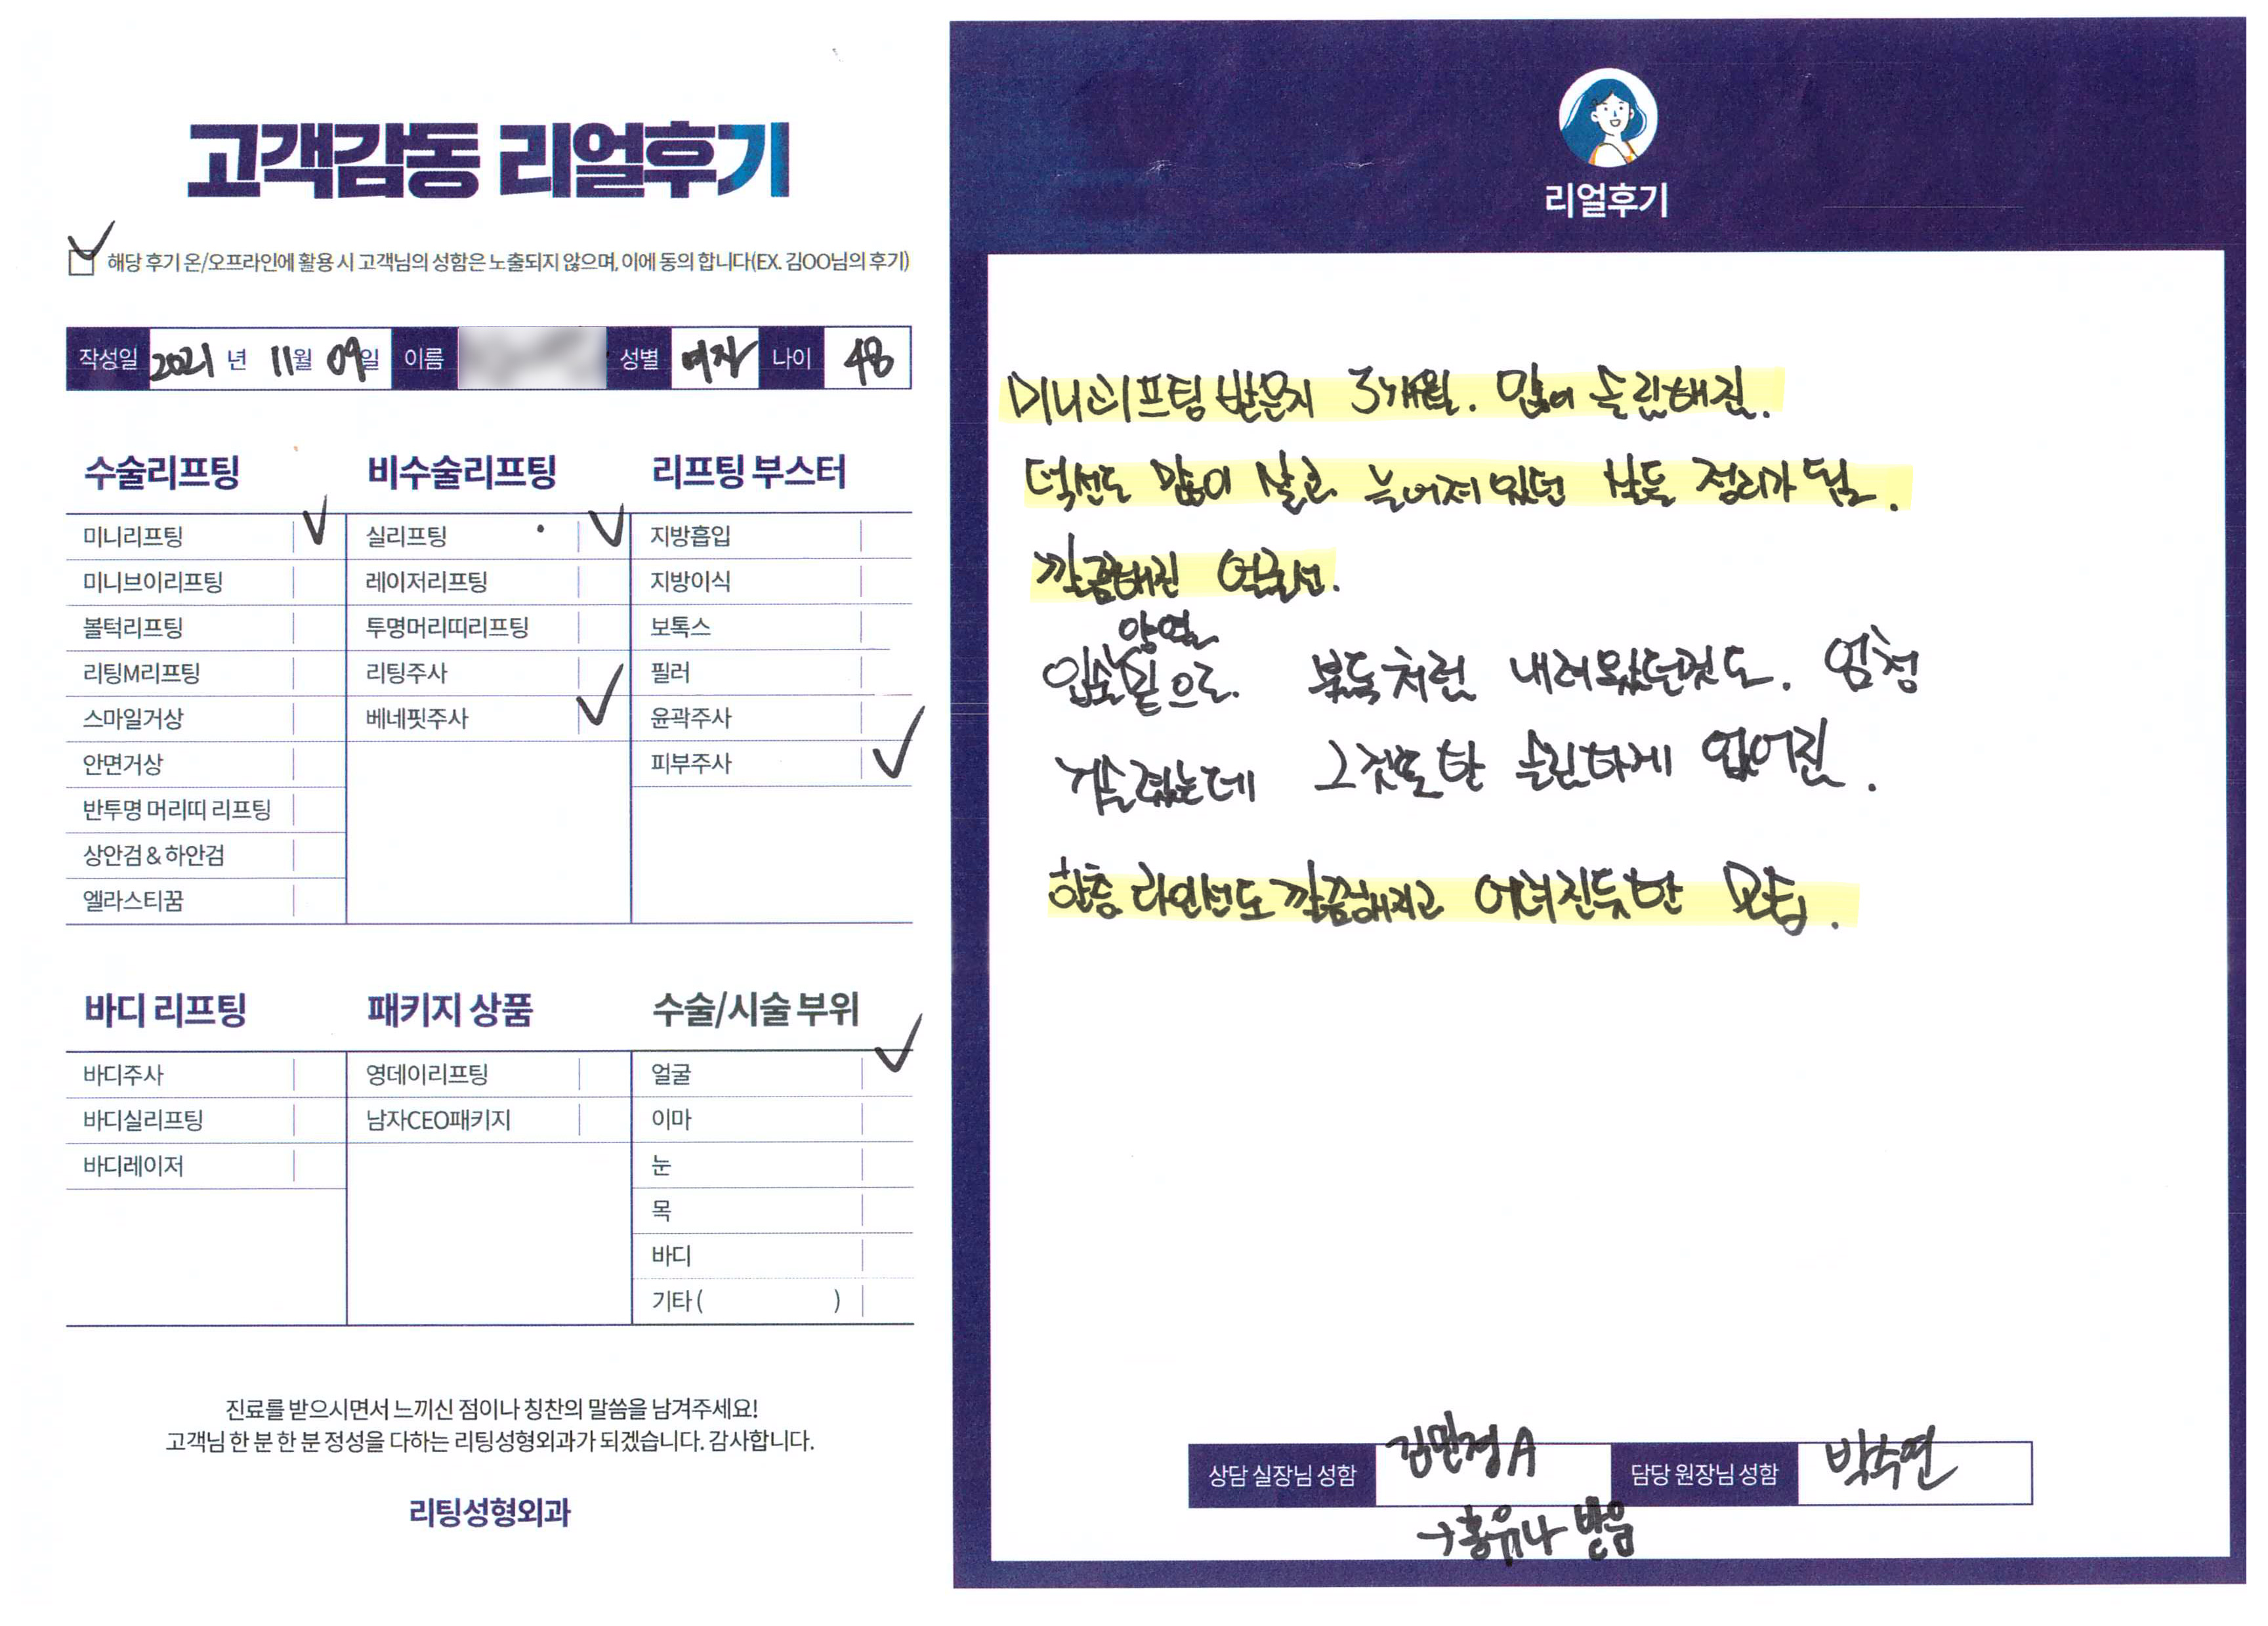 고객감동 리얼후기
해당 후기 온/오프라인에 활용 시 고객님의 성함은 노출되지 않으며, 이에 동의 합니다(EX. 김OO님의 후기)
작성일 2021 년 11월 09일 이름 성별 여자 나이 48
수술리프팅
미니리프팅
미니브이리프팅
볼턱리프팅
리팅M리프팅
스마일거상
안면거상
반투명 머리띠 리프팅
상안검 & 하안검
엘라스티꿈
비수술리프팅
실리프팅
레이저리프팅
투명머리띠리프팅
리팅주사
베네핏주사
리프팅 부스터
지방흡입
지방이식
보톡스
필러
윤곽주사
피부주사
바디 리프팅
바디주사
바디실리프팅
바디레이저
패키지 상품
영데이리프팅
남자CEO패키지
수술/시술 부위
얼굴
이마
눈
목
바디
기타 ( )
진료를 받으시면서 느끼신 점이나 칭찬의 말씀을 남겨주세요!
고객님 한 분 한 분 정성을 다하는 리팅성형외과가 되겠습니다. 감사합니다.
리팅성형외과
리얼후기
미니리프팅 받은지 3개월. 많이 슬림해짐.
턱선도 많이 살고 늘어져 있던 살들 정리가 됨.
깔끔해진 얼굴선.
양옆
입술밑으로 볼독처럼 내려왔던것도. 엄청
거슬렸는데 그것또한 슬림하게 없어짐.
한층 라인선도 깔끔해지고 어려진듯한 모습.
상담 실장님 성함 김민경A 담당 원장님 성함 박숙연
→홍유나 받음